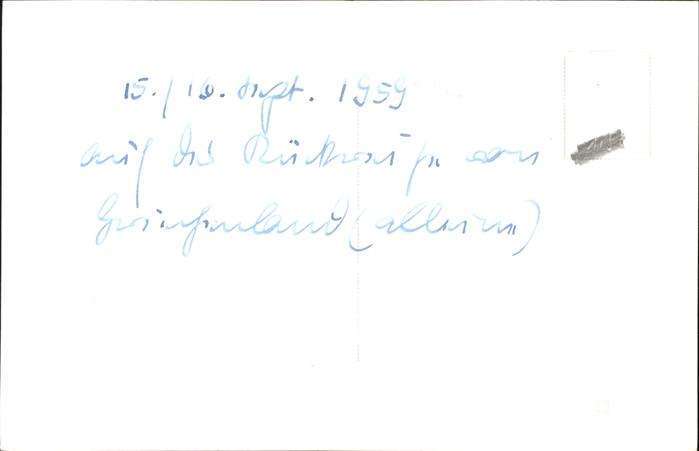 15./16. Sept. 1959
auf der Rückreise von
Griechenland (alleine)